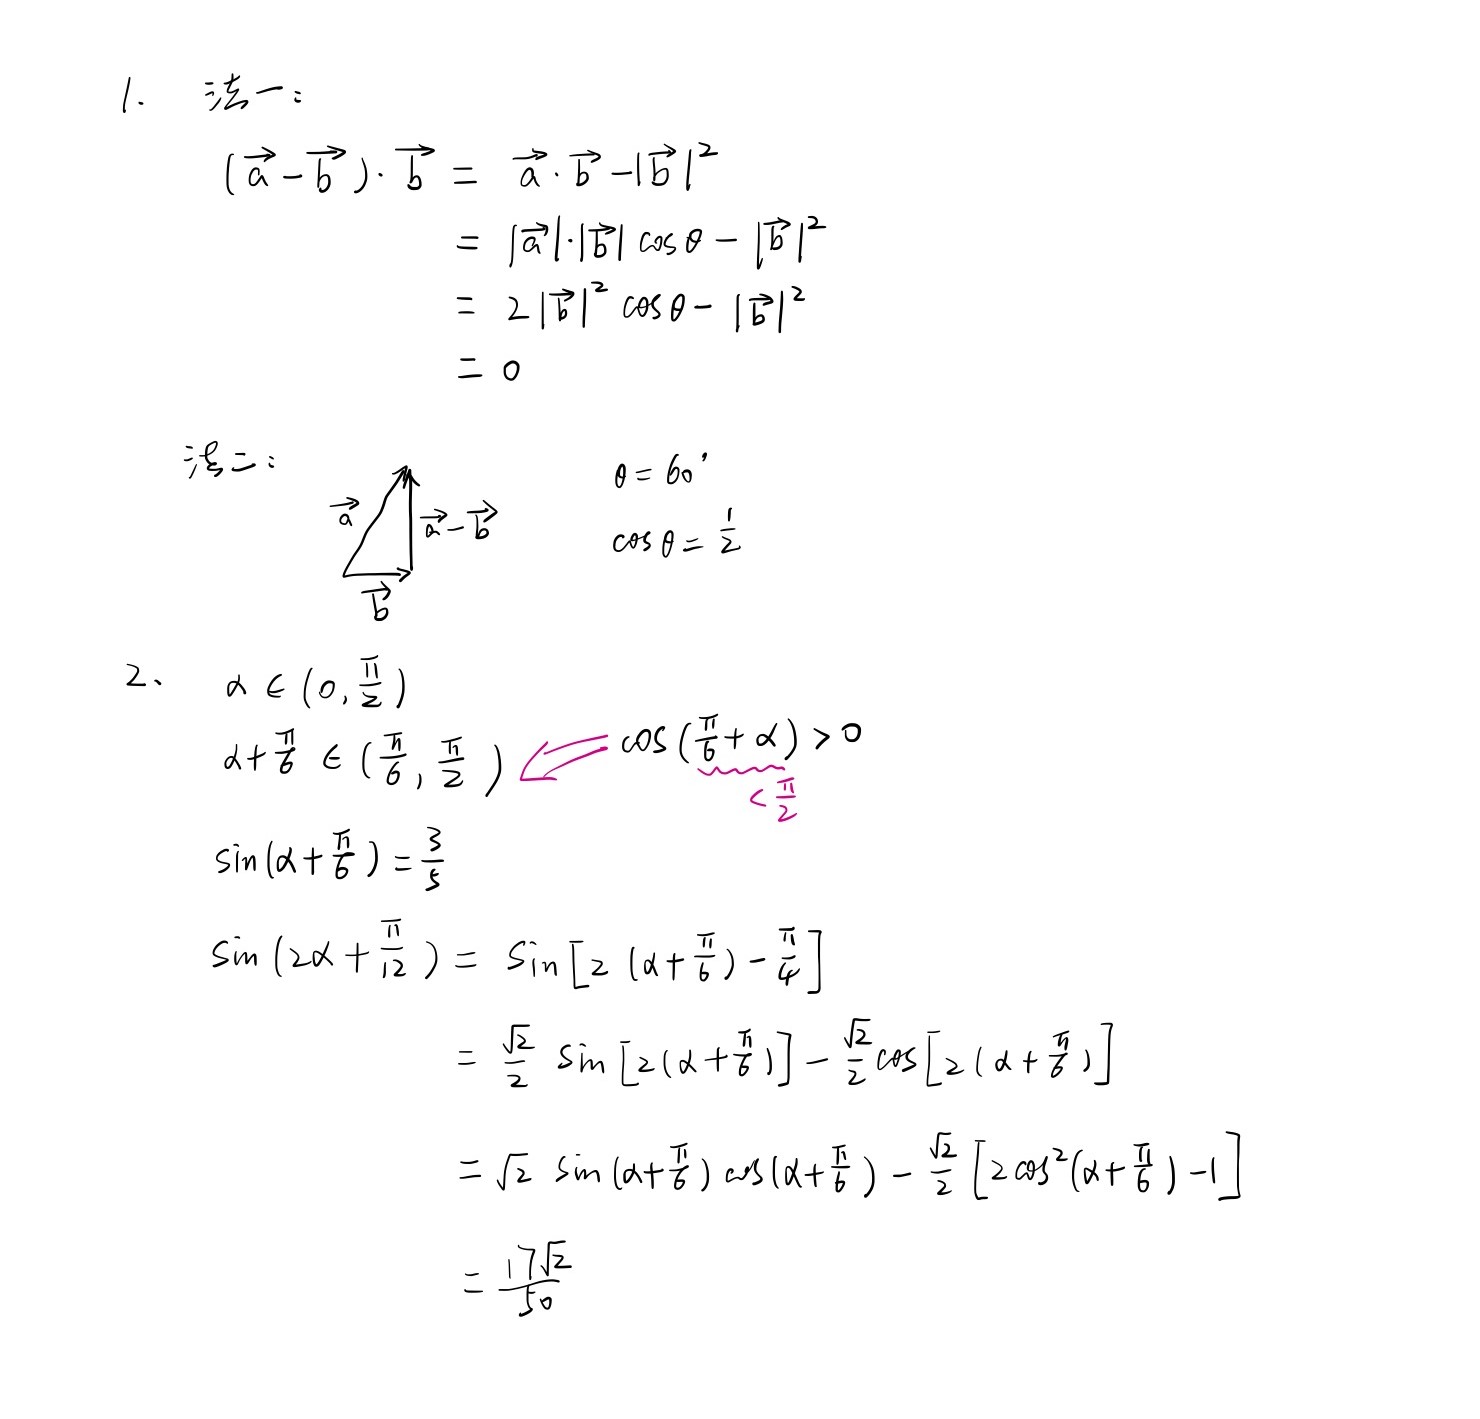 1. 法一:
(a⃗ - b⃗)·b⃗ = a⃗·b⃗ - |b⃗|²
= |a⃗|·|b⃗| cosθ - |b⃗|²
= 2|b⃗|² cosθ - |b⃗|²
= 0
法二:
a⃗
a⃗ - b⃗
b⃗
θ = 60°
cosθ = 1/2
2、 α ∈ (0, π/2)
α + π/6 ∈ (π/6, π/2) ⇐ cos(π/6 + α) > 0
< π/2
sin(α + π/6) = 3/5
sin(2α + π/12) = sin[2(α + π/6) - π/4]
= √2/2 sin[2(α + π/6)] - √2/2 cos[2(α + π/6)]
= √2 sin(α + π/6) cos(α + π/6) - √2/2 [2cos²(α + π/6) - 1]
= 17√2/50